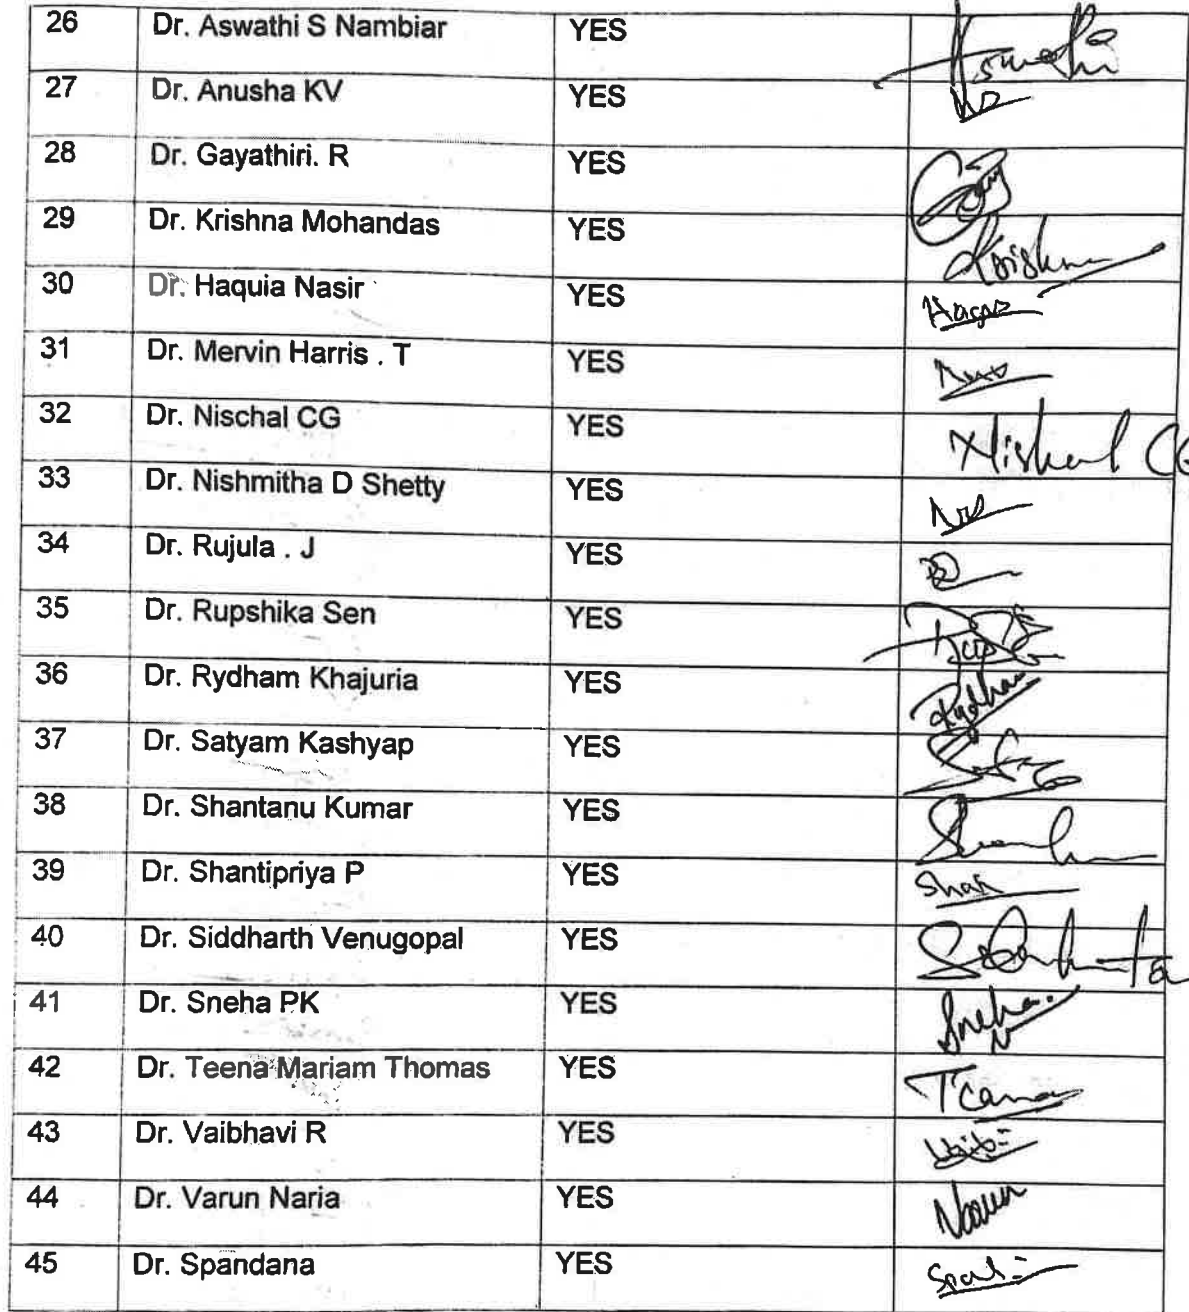 26 Dr. Aswathi S Nambiar YES Aswathi
27 Dr. Anusha KV YES
28 Dr. Gayathiri. R YES
29 Dr. Krishna Mohandas YES Krishna
30 Dr. Haquia Nasir YES
31 Dr. Mervin Harris . T YES
32 Dr. Nischal CG YES Nishal CG
33 Dr. Nishmitha D Shetty YES
34 Dr. Rujula . J YES
35 Dr. Rupshika Sen YES
36 Dr. Rydham Khajuria YES Rydham
37 Dr. Satyam Kashyap YES
38 Dr. Shantanu Kumar YES
39 Dr. Shantipriya P YES Shan
40 Dr. Siddharth Venugopal YES
41 Dr. Sneha PK YES Sneha.
42 Dr. Teena Mariam Thomas YES Teena
43 Dr. Vaibhavi R YES
44 Dr. Varun Naria YES Varun
45 Dr. Spandana YES